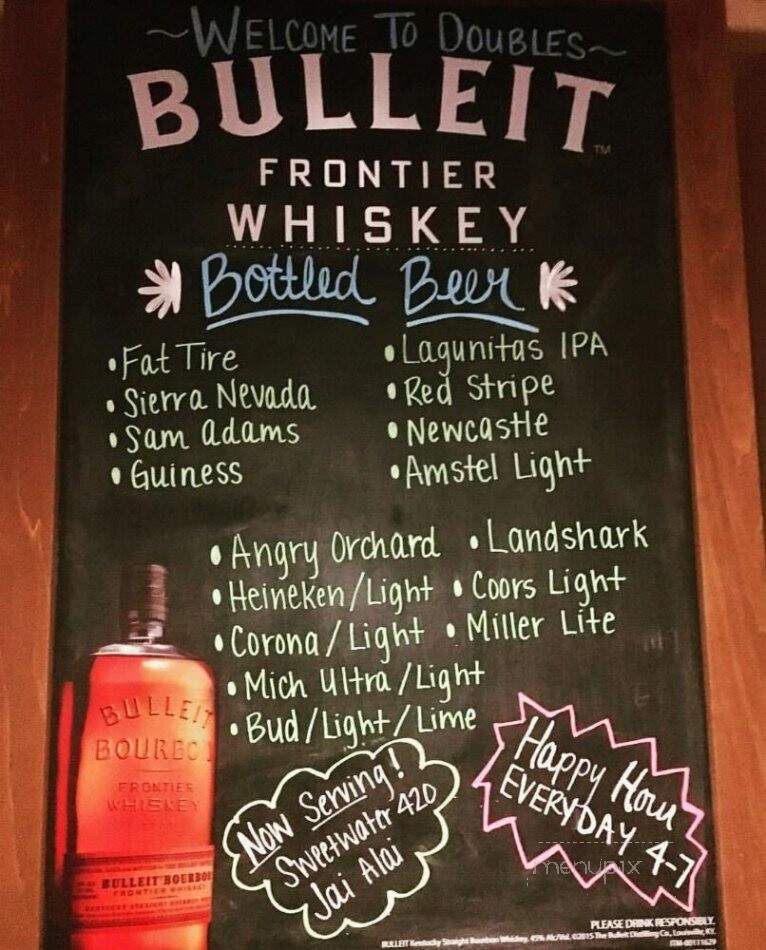 ~WELCOME TO DOUBLES~
BULLEIT
TM
FRONTIER
WHISKEY
Bottled Beer
• Fat Tire
• Sierra Nevada
• Sam Adams
• Guiness
• Lagunitas IPA
• Red Stripe
• Newcastle
• Amstel Light
• Angry Orchard • Landshark
• Heineken/Light • Coors Light
• Corona/Light • Miller Lite
• Mich Ultra/Light
• Bud/Light/Lime
Now Serving!
Sweetwater 420
Jai Alai
Happy Hour
EVERYDAY 4-7
menupix
BULLEIT
BOURBO
FRONTIER
WHISKEY
BULLEIT BOURBO
FRONTIER WHISKEY
PLEASE DRINK RESPONSIBLY.
BULLEIT Kentucky Straight Bourbon Whiskey. 45% Alc/Vol. ©2015 The Bulleit Distilling Co., Louisville, KY.